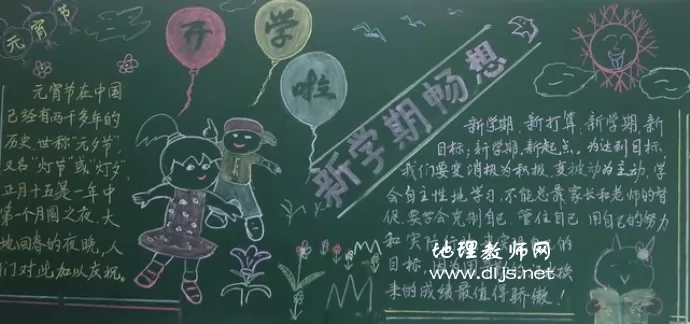 元宵节
元宵节在中国
已经有两千多年的
历史,世称“元夕节”
又名“灯节”或“灯夕”
正月十五是一年中
第一个月圆之夜、大
地回春的夜晚,人
们对此加以庆祝。
开
学
啦
新学期畅想
新学期、新打算、新学期、新
目标;新学期、新起点。为达到目标
我们要变消极为积极,变被动为主动,学
会自主性地学习,不能总靠家长和老师的督
促,要学会克制自己,管住自己,用自己的努力
和实际
的
目标,因
换
来的成绩最值得骄傲!
地理教师网
www.dljs.net